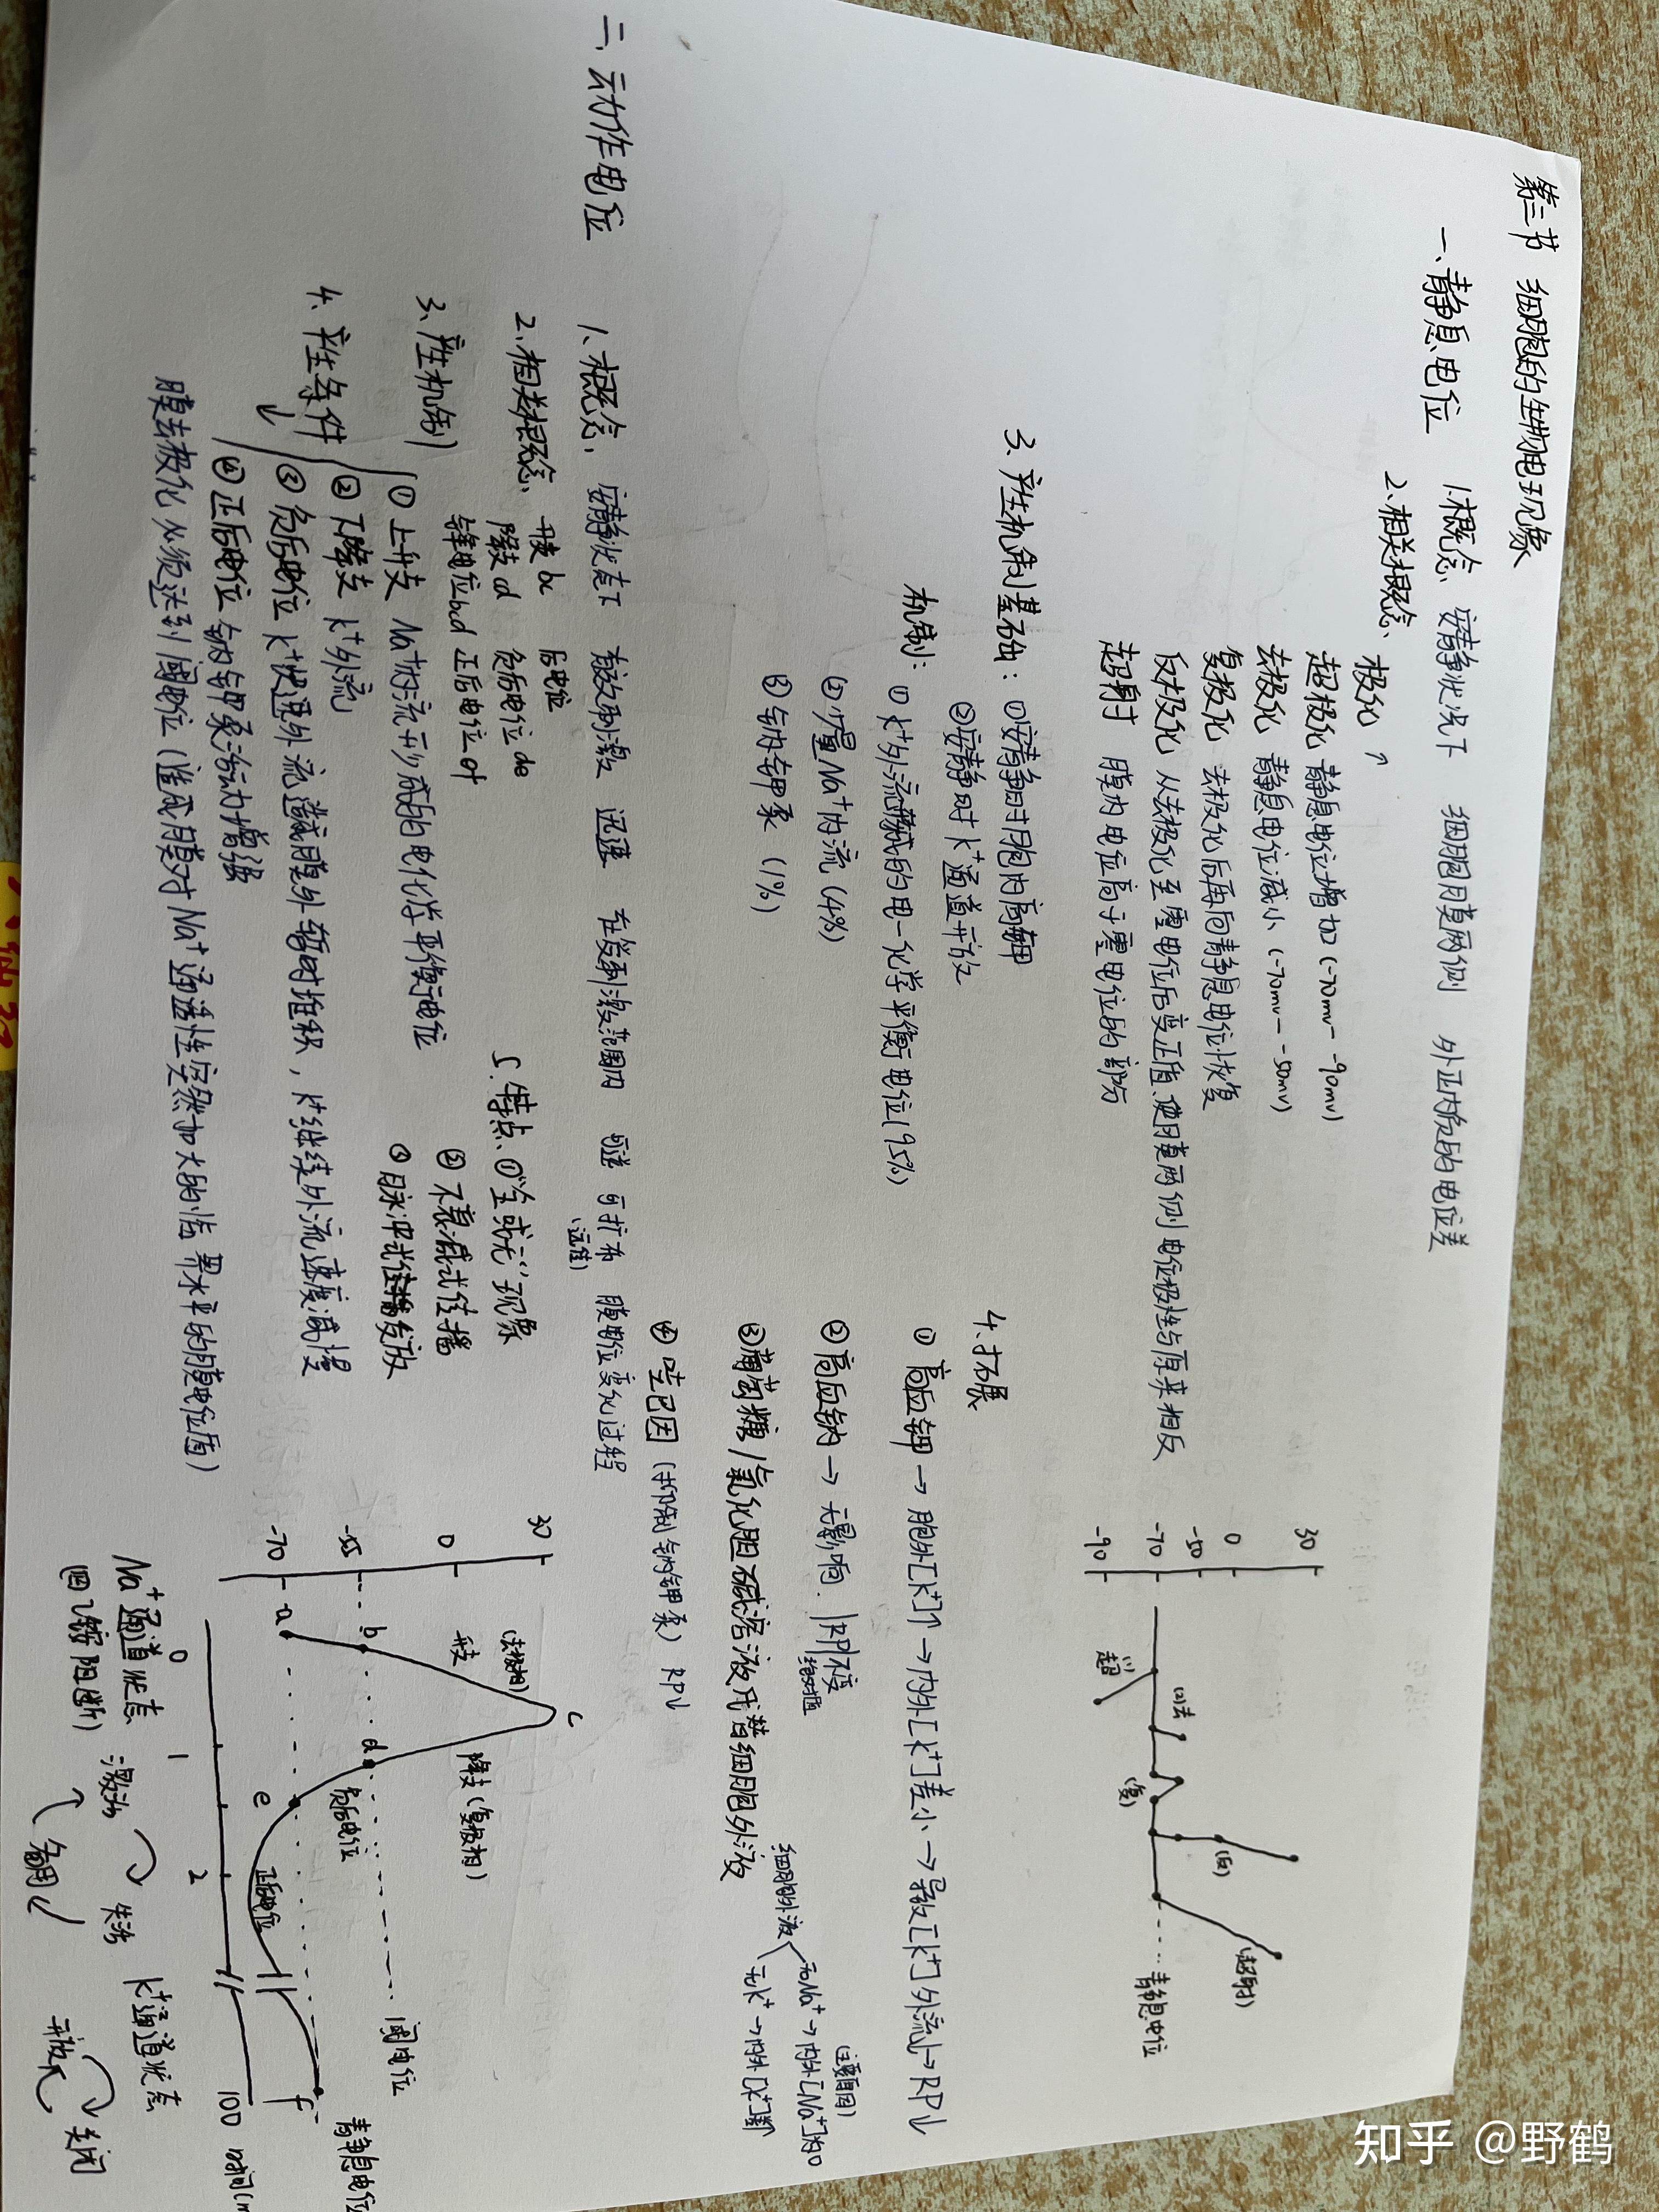 第三节 细胞的生物电现象
一、静息电位
1.概念、安静状况下 细胞膜两侧 外正内负的电位差
2.相关概念、
极化
超极化 静息电位增加 (-70mv — -90mv)
去极化 静息电位减小 (-70mv — -50mv)
复极化 去极化后再向静息电位恢复
反极化 从去极化至零电位后变正值,使膜两侧电位极性与原来相反
超射 膜内电位高于零电位的部分
30
0
-50
-70
-90
(1)超
(2)去
(复)
(反)
(超射)
静息电位
3、产生机制基础:①安静时胞内高钾
②安静时K⁺通道开放
机制:①K⁺外流形成的电-化学平衡电位(95%)
②少量Na⁺内流(4%)
③钠钾泵(1%)
4.扩展
① 高血钾 → 胞外[K⁺]↑ → 内外[K⁺]差小 → 导致[K⁺]外流↓ → RP↓
②高血钠 → 无影响. |RP|不变
绝对值
③葡萄糖/氯化胆碱溶液代替细胞外液
细胞外液
无Na⁺ → 内外[Na⁺]为0
(主要原因)
无K⁺ → 内外[K⁺]
④ 哇巴因(抑制钠钾泵) RP↓
二、动作电位
1、概念、安静状态下 有效刺激 迅速 在受刺激范围内 可逆 可扩布 膜电位变化过程
(远传)
2、相关概念、升支 bc 后电位
降支 cd 负后电位 de
锋电位 bcd 正后电位 ef
3、产生机制
① 上升支 Na⁺内流形成的电化学平衡电位
② 下降支 K⁺外流
③ 负后电位 K⁺快速外流造成膜外暂时堆积,K⁺继续外流速度减慢
④ 正后电位 钠钾泵活动力增强
4、产生条件
膜去极化必须达到阈电位(造成膜对Na⁺通透性突然加大的临界水平的膜电位值)
5.特点、①“全或无”现象
② 不衰减式传播
③ 脉冲式发放
30
0
-55
-70
a
b
c
d
e
f
升支
(去极相)
降支(复极相)
负后电位
正后电位
阈电位
静息电位
0 1 2 100 时间(m
Na⁺通道状态 激活 失活
备用
K⁺通道状态
开放 关闭